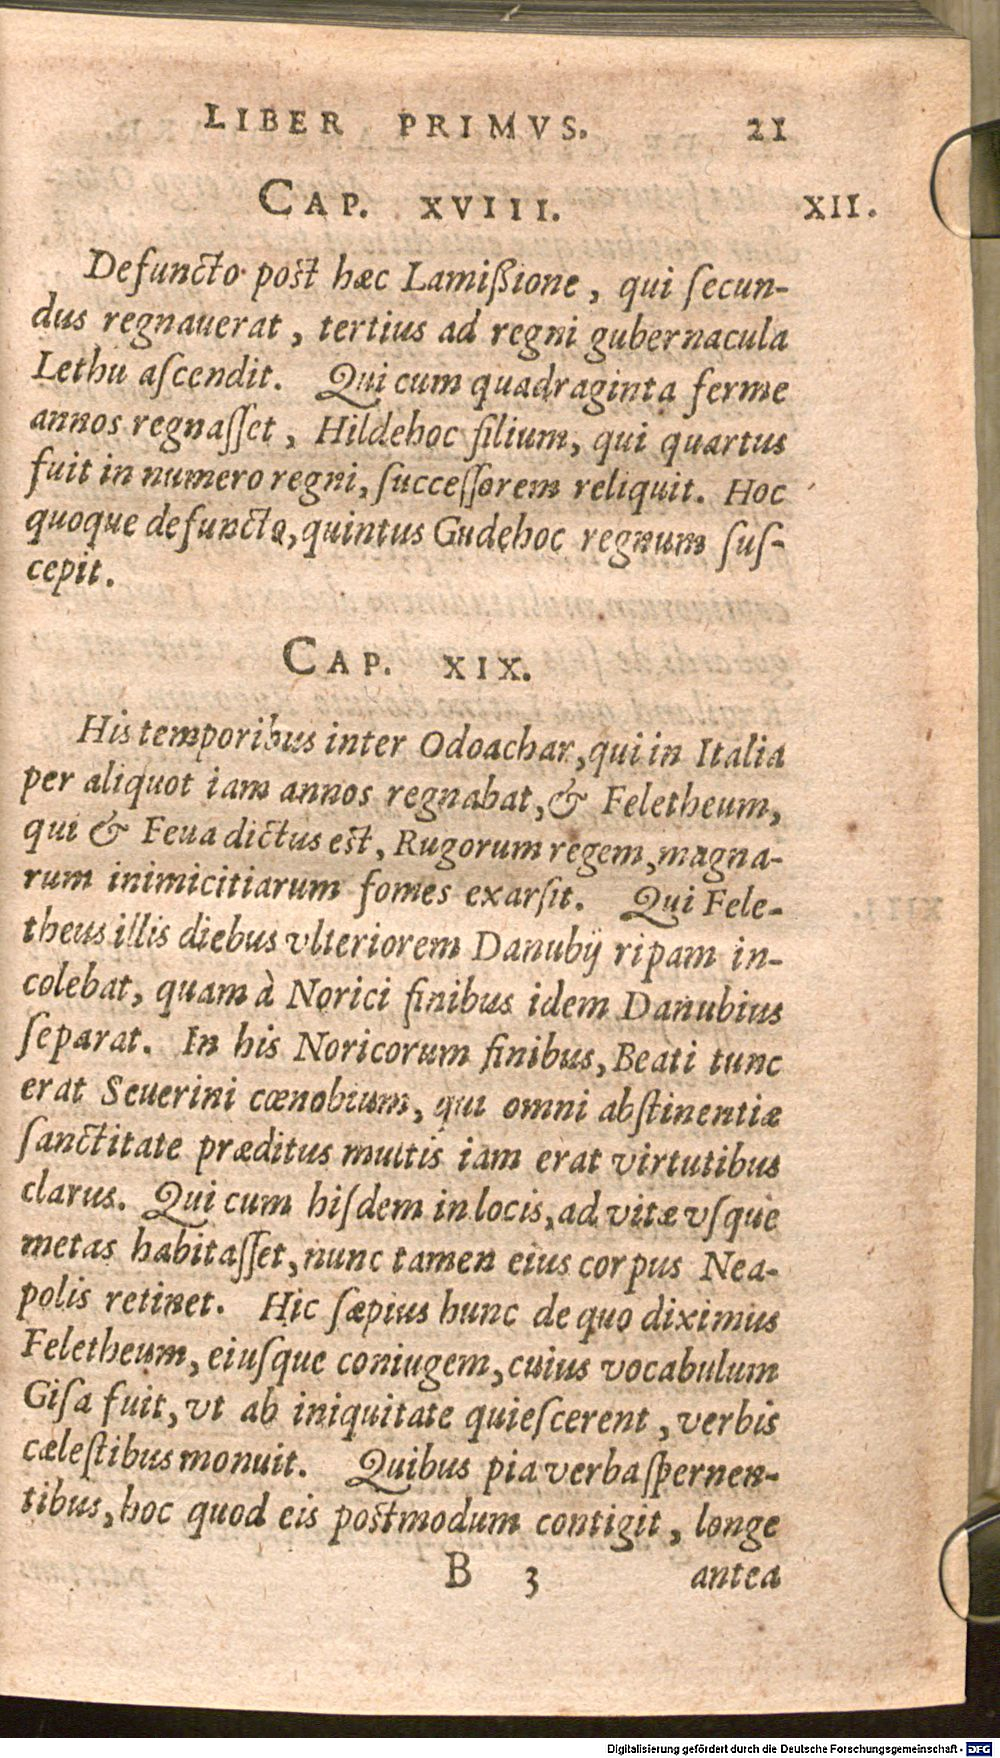 LIBER PRIMVS. 21
CAP. XVIII. XII.
Defuncto post hæc Lamißione, qui ſecun-
dus regnauerat, tertius ad regni gubernacula
Lethu aſcendit. Qui cum quadraginta ferme
annos regnaſſet, Hildehoc filium, qui quartus
fuit in numero regni, ſucceſſorem reliquit. Hoc
quoque defuncto, quintus Gudehoc regnum ſuſ-
cepit.
CAP. XIX.
His temporibus inter Odoachar, qui in Italia
per aliquot iam annos regnabat, & Feletheum,
qui & Feua dictus est, Rugorum regem, magna-
rum inimicitiarum fomes exarſit. Qui Fele-
theus illis diebus vlteriorem Danubij ripam in-
colebat, quam à Norici finibus idem Danubius
ſeparat. In his Noricorum finibus, Beati tunc
erat Seuerini cœnobium, qui omni abſtinentiæ
ſanctitate præditus multis iam erat virtutibus
clarus. Qui cum hiſdem in locis, ad vitæ vſque
metas habitaſſet, nunc tamen eius corpus Nea-
polis retinet. Hic ſæpius hunc de quo diximus
Feletheum, eiuſque coniugem, cuius vocabulum
Giſa fuit, vt ab iniquitate quieſcerent, verbis
cæleſtibus monuit. Quibus pia verba ſpernen-
tibus, hoc quod eis postmodum contigit, longe
B 3 antea
Digitalisierung gefördert durch die Deutsche Forschungsgemeinschaft - DFG